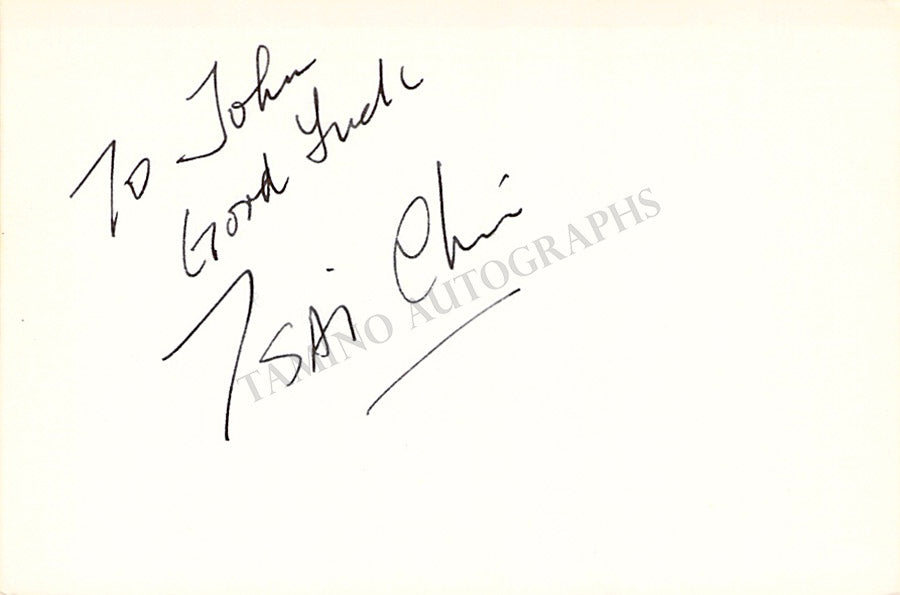 To John
Good Luck
Tsai Chin
TAMINO AUTOGRAPHS